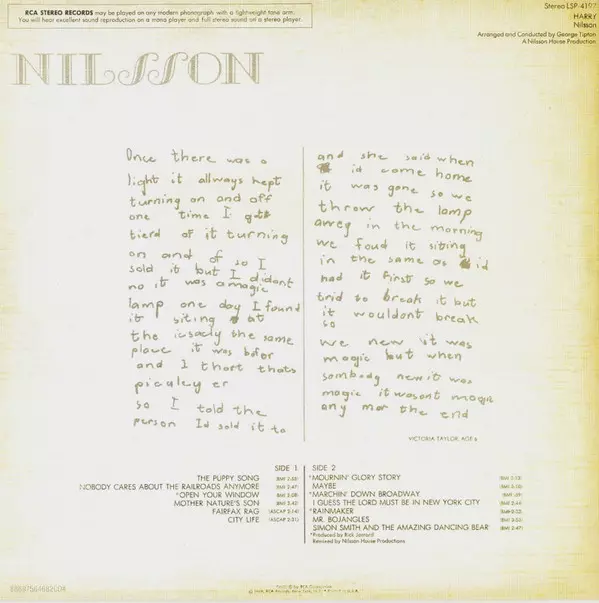 RCA STEREO RECORDS may be played on any modern phonograph with a lightweight tone arm.
You will hear excellent sound reproduction on a mono player and full stereo sound on a stereo player.
Stereo LSP-4197
HARRY
Nilsson
Arranged and Conducted by George Tipton
A Nilsson House Production
NILSSON
Once there was a
light it allways kept
turning on and off
one time I got
tierd of it turning
on and of so I
sold it but I didont
no it was a magic
lamp one day I found
it siting at
the icsacly the same
place it was bofor
and I thort thats
piculey er
so I told the
person Id sold it to
and she said when
id came home
it was gone so we
throw the lamp
awey in the morning
we foud it siting
in the same as id
had it first so we
trid to break it but
it wouldont break
so
we new it was
magic but when
sombody new it was
magic it wasont magic
any mor the end
VICTORIA TAYLOR, AGE 6
SIDE 1
THE PUPPY SONG
NOBODY CARES ABOUT THE RAILROADS ANYMORE
*OPEN YOUR WINDOW
MOTHER NATURE'S SON
FAIRFAX RAG (ASCAP 2:14)
CITY LIFE (ASCAP 2:31)
SIDE 2
*MOURNIN' GLORY STORY
MAYBE
*MARCHIN' DOWN BROADWAY
I GUESS THE LORD MUST BE IN NEW YORK CITY
*RAINMAKER
MR. BOJANGLES
SIMON SMITH AND THE AMAZING DANCING BEAR
*Produced by Rick Jarrard
Remixed by Nilsson House Productions